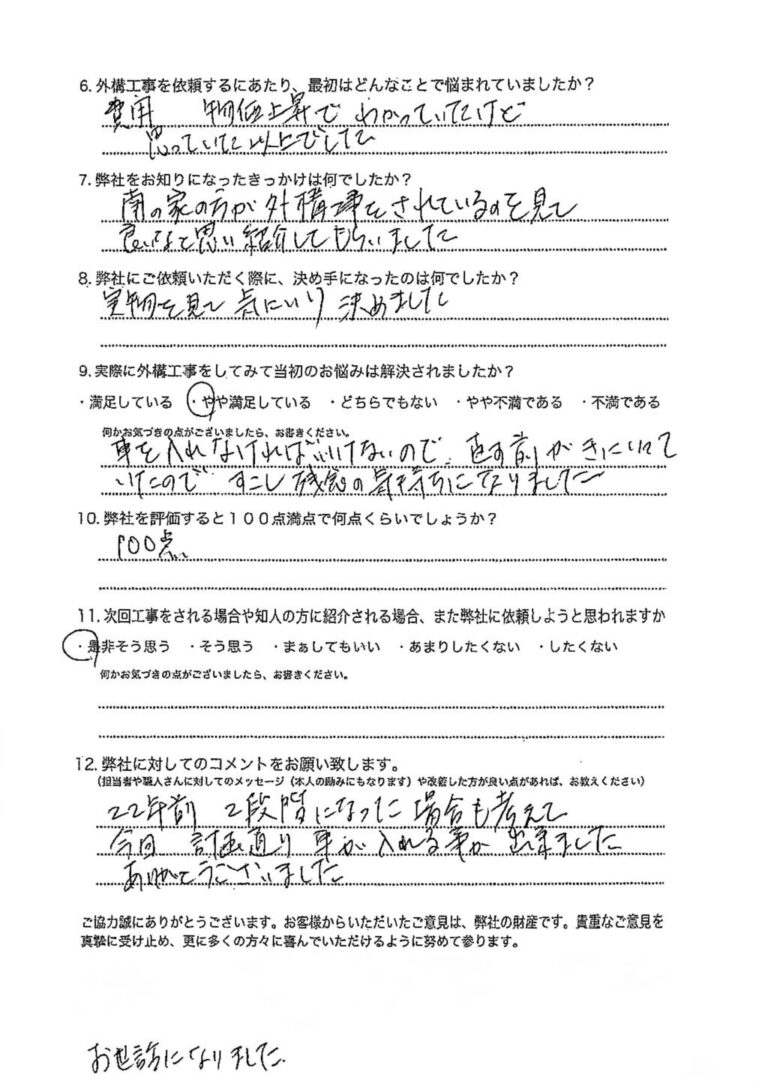 6. 外構工事を依頼するにあたり、最初はどんなことで悩まれていましたか？
費用　物価上昇で わかっていたけど
思っていた以上でした
7. 弊社をお知りになったきっかけは何でしたか？
南の家の方が外構工事をされているのを見て
良いなと思い紹介してもらいました
8. 弊社にご依頼いただく際に、決め手になったのは何でしたか？
実物を見て 気にいり 決めました
9. 実際に外構工事をしてみて当初のお悩みは解決されましたか？
・満足している　・やや満足している　・どちらでもない　・やや不満である　・不満である
何かお気づきの点がございましたら、お書きください。
車を入れなければいけないので、直す前がきにいって
いたので すこし残念の気持ちになりました
10. 弊社を評価すると１００点満点で何点くらいでしょうか？
100点
11. 次回工事をされる場合や知人の方に紹介される場合、また弊社に依頼しようと思われますか
・是非そう思う　・そう思う　・まぁしてもいい　・あまりしたくない　・したくない
何かお気づきの点がございましたら、お書きください。
12. 弊社に対してのコメントをお願い致します。
（担当者や職人さんに対してのメッセージ（本人の励みにもなります）や改善した方が良い点があれば、お教えください）
22年前　2段階になった場合も考えて
今回　計画通り 車が入れる事が 出来ました
ありがとうございました
ご協力誠にありがとうございます。お客様からいただいたご意見は、弊社の財産です。貴重なご意見を
真摯に受け止め、更に多くの方々に喜んでいただけるように努めて参ります。
お世話になりました。